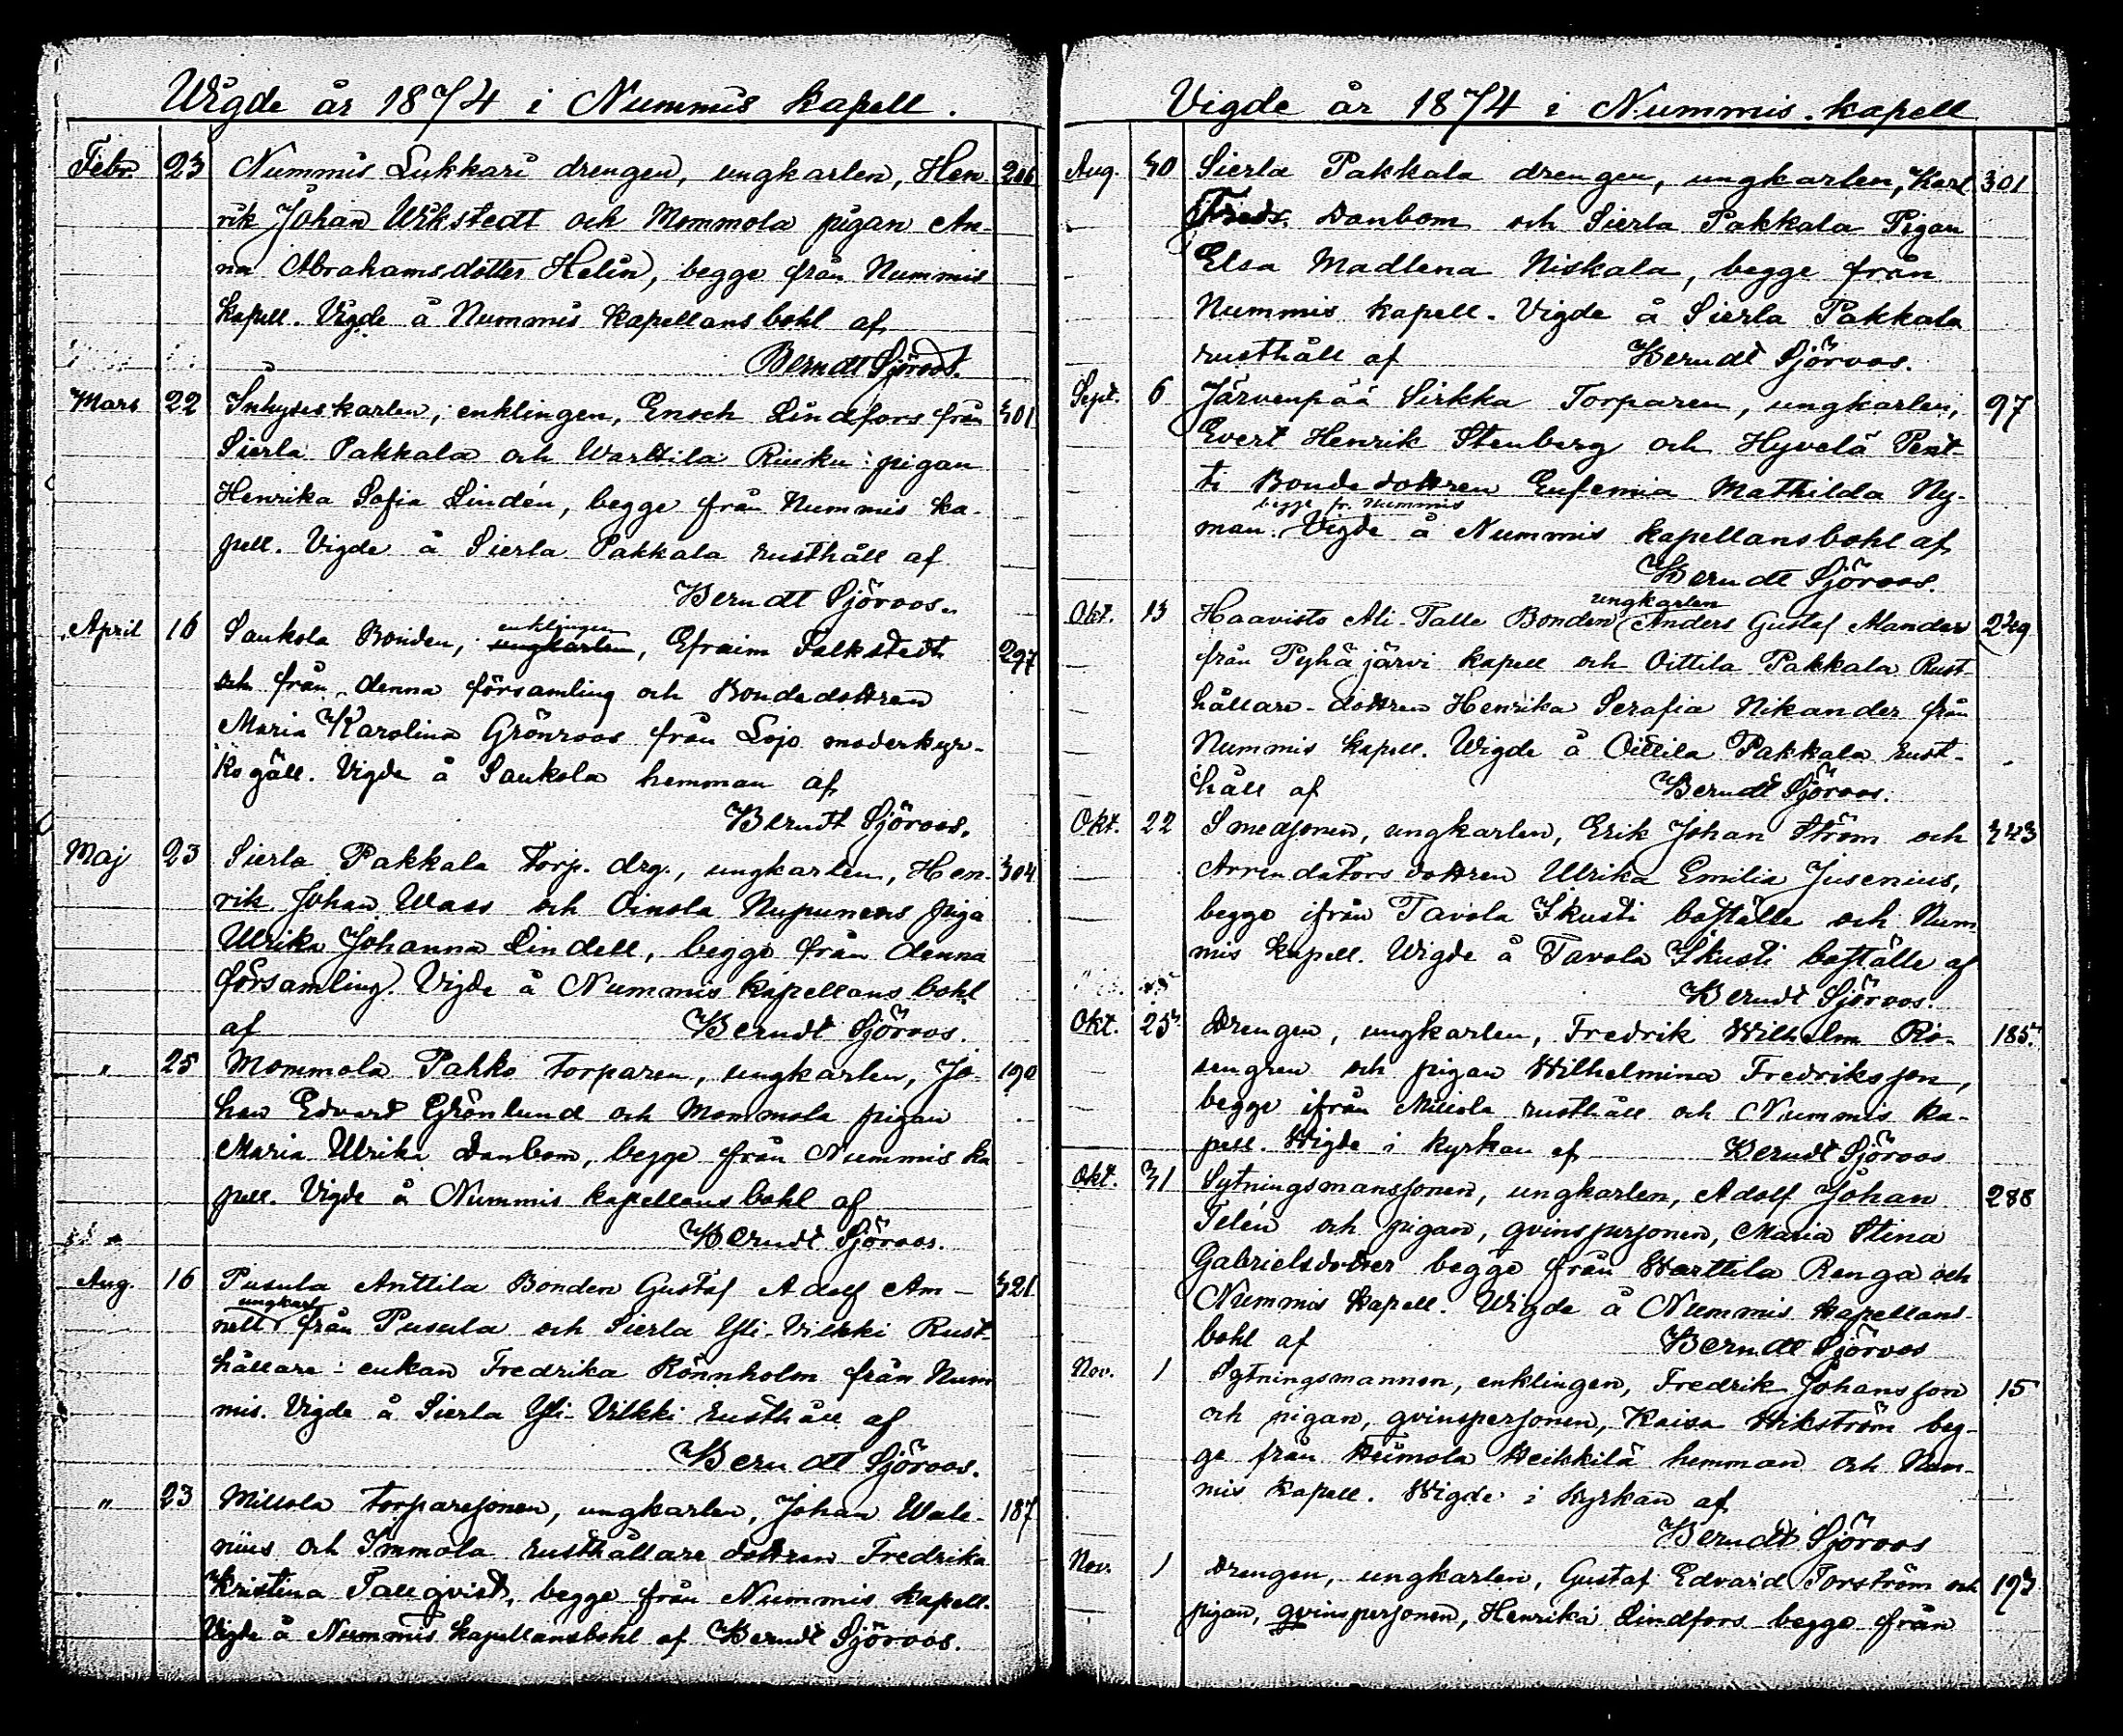 Wigde år 1874 i Nummis kapell.
Febr. 23 Nummis Lukkari drengen, ungkarlen, Hen 206
rik Johan Wikstedt och Mommola pigan An-
na Abrahamsdotter Helin, begge från Nummis
kapell. Vigde å Nummis kapellansbohl af
Berndt Sjöroos.
Mars 22 Inhyseskarlen, enklingen, Enoch Lindfors från 301
Sierla Pakkala och Warttila Riuku pigan
Henrika Sofia Lindén, begge från Nummis ka-
pell. Vigde å Sierla Pakkala rusthåll af
Berndt Sjöroos.
enklingen
April 16 Saukola Bonden, ungkarlen, Efraim Falkstedt 297
och från denna församling och Bondedottren
Maria Karolina Grönroos från Lojo moderkyr-
kogäll. Vigde å Saukola hemman af
Berndt Sjöroos.
Maj 23 Sierla Pakkala torp. drg., ungkarlen, Hen- 304
rik Johan Wass och Oinola Nupunens piga
Ulrika Johanna Lindell, begge från denna
församling. Vigde å Nummis kapellans bohl
af Berndt Sjöroos.
" 25 Mommola Pahko torparen, ungkarlen, Jo- 190
han Edvard Grönlund och Mommola pigan
Maria Ulrika Danbom, begge från Nummis ka
pell. Vigde å Nummis kapellansbohl af
Berndt Sjöroos.
Aug. 16 Pusula Anttila Bonden Gustaf Adolf Am- 321
ungkarl
nell från Pusula och Sierla Yli-Vilkki Rust-
hållare-enkan Fredrika Rönnholm från Num
mis. Vigde å Sierla Yli-Vilkki rusthåll af
Berndt Sjöroos.
" 23 Millola torparesonen, ungkarlen, Johan Wale- 187
nius och Immola rusthållare dottren Fredrika
Kristina Tallqvist, begge från Nummis kapell.
Vigde å Nummis kapellansbohl af Berndt Sjöroos.
Vigde år 1874 i Nummis kapell
Aug. 30 Sierla Pakkala drengen, ungkarlen, Karl 301
Fredr. Danbom och Sierla Pakkala Pigan
Elsa Madlena Niskala, begge från
Nummis kapell. Vigde å Sierla Pakkala
rusthåll af Berndt Sjöroos.
Sept. 6 Järvenpää Sirkka Torparen, ungkarlen, 97
Evert Henrik Stenberg och Hyvelä Pent-
ti Bondedottren Eufemia Mathilda Ny-
begge fr. Nummis
man. Vigde å Nummis kapellansbohl af
Berndt Sjöroos.
ungkarlen
Okt. 13 Haavisto Ali-Talle Bonden Anders Gustaf Mander 229
från Pyhäjärvi kapell och Oittila Pakkala Rust-
hållare-dottren Henrika Serafia Nikander från
Nummis kapell. Wigde å Oittila Pakkala rust-
håll af Berndt Sjöroos.
Okt. 22 Smedsonen, ungkarlen, Erik Johan Ström och 343
Arrendators dottren Ulrika Emilia Jusenius,
begge ifrån Tavola Skusti boställe och Num
mis kapell. Wigde å Tavola Skusti boställe af
Berndt Sjöroos.
Okt. 25 Drengen, ungkarlen, Fredrik Wilhelm Ro- 185
sengren och pigan Wilhelmina Fredriksson,
begge ifrån Millola rusthåll och Nummis ka-
pell. Wigde i kyrkan af Berndt Sjöroos
Okt. 31 Sytningsmanssonen, ungkarlen, Adolf Johan 288
Telén och pigan, qvinspersonen, Maria Stina
Gabrielsdotter begge från Warttila Renga och
Nummis kapell. Wigde å Nummis kapellans-
bohl af Berndt Sjöroos
Nov. 1 Sytningsmannen, enklingen, Fredrik Johansson 15
och pigan, qvinspersonen, Kaisa Wikström beg-
ge från Heimola Heikkilä hemman och Num-
mis kapell. Wigde i kyrkan af
Berndt Sjöroos
Nov. 1 Drengen, ungkarlen, Gustaf Edvard Torström och 193
pigan, qvinspersonen, Henrika Lindfors begge från